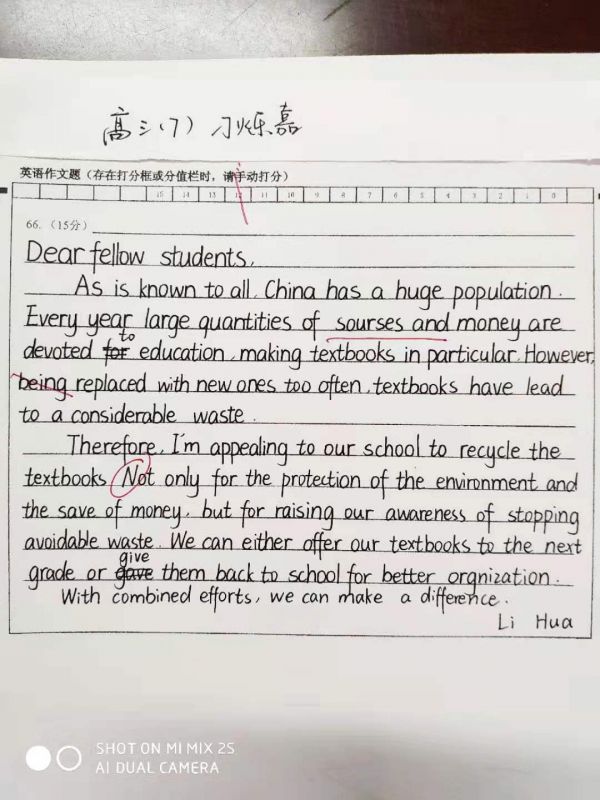 高三(7) 刁烁嘉
英语作文题（存在打分框或分值栏时，请手动打分）
15 14 13 12 11 10 9 8 7 6 5 4 3 2 1 0
66.（15分）
Dear fellow students,
As is known to all, China has a huge population.
Every year large quantities of sourses and money are
devoted for to education, making textbooks in particular. However,
being replaced with new ones too often, textbooks have lead
to a considerable waste.
Therefore, I'm appealing to our school to recycle the
textbooks Not only for the protection of the environment and
the save of money, but for raising our awareness of stopping
avoidable waste. We can either offer our textbooks to the next
grade or gave give them back to school for better orgnization.
With combined efforts, we can make a difference.
Li Hua
SHOT ON MI MIX 2S
AI DUAL CAMERA